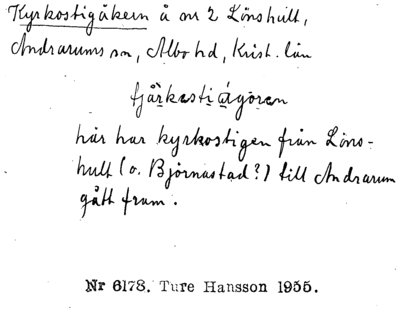 Kyrkostigåkern å nr 2 Lönshult,
Andrarums sn, Albo hd, Krist. län
här har kyrkostigen från Löns-
hult (o. Björnastad?) till Andrarum
gått fram.
Nr 6178. Ture Hansson 1955.